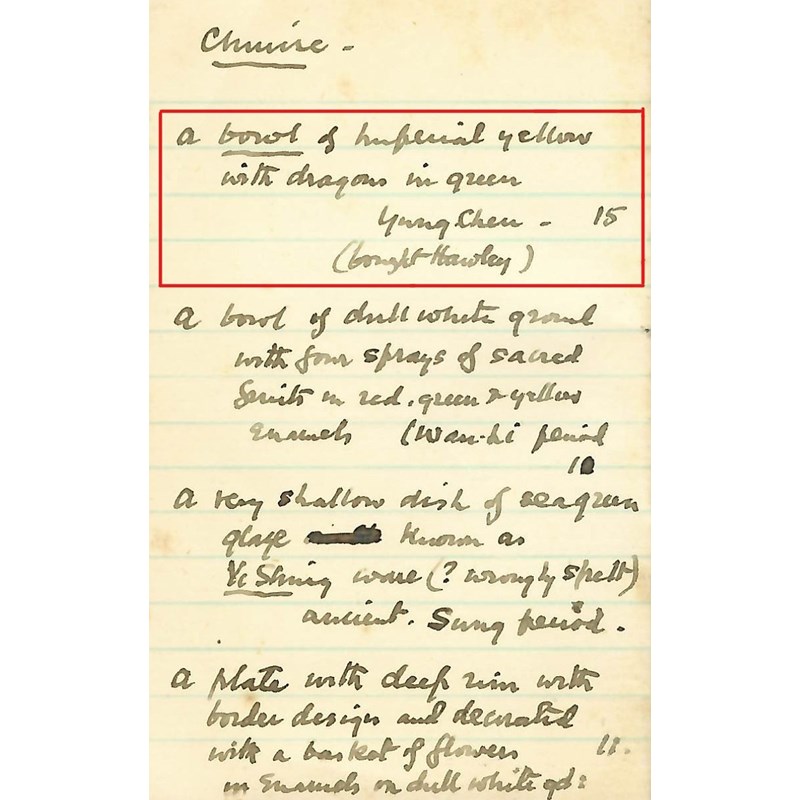 Chinese -
a bowl of Imperial yellow
with dragons in green
Yung Chen - 15
(bought Hawley)
a bowl of dull white ground
with four sprays of sacred
fruits in red, green & yellow
Enamels (Wan-Li period
10
a very shallow dish of sea green
glaze known as
Yi Shing ware (? wrongly spelt)
ancient. Sung period.
a plate with deep rim with
border design and decorated
with a basket of flowers 11.
in Enamels on dull white gd: